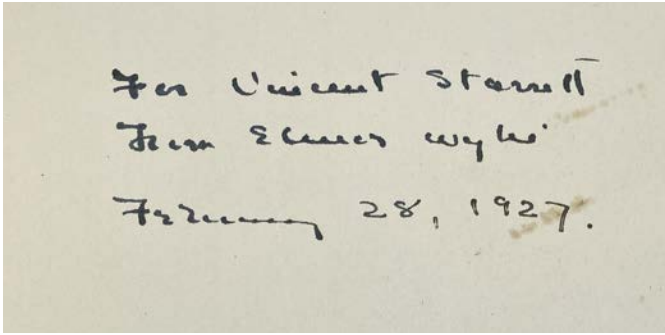 For Vincent Starrett
From Elinor Wylie
February 28, 1927.